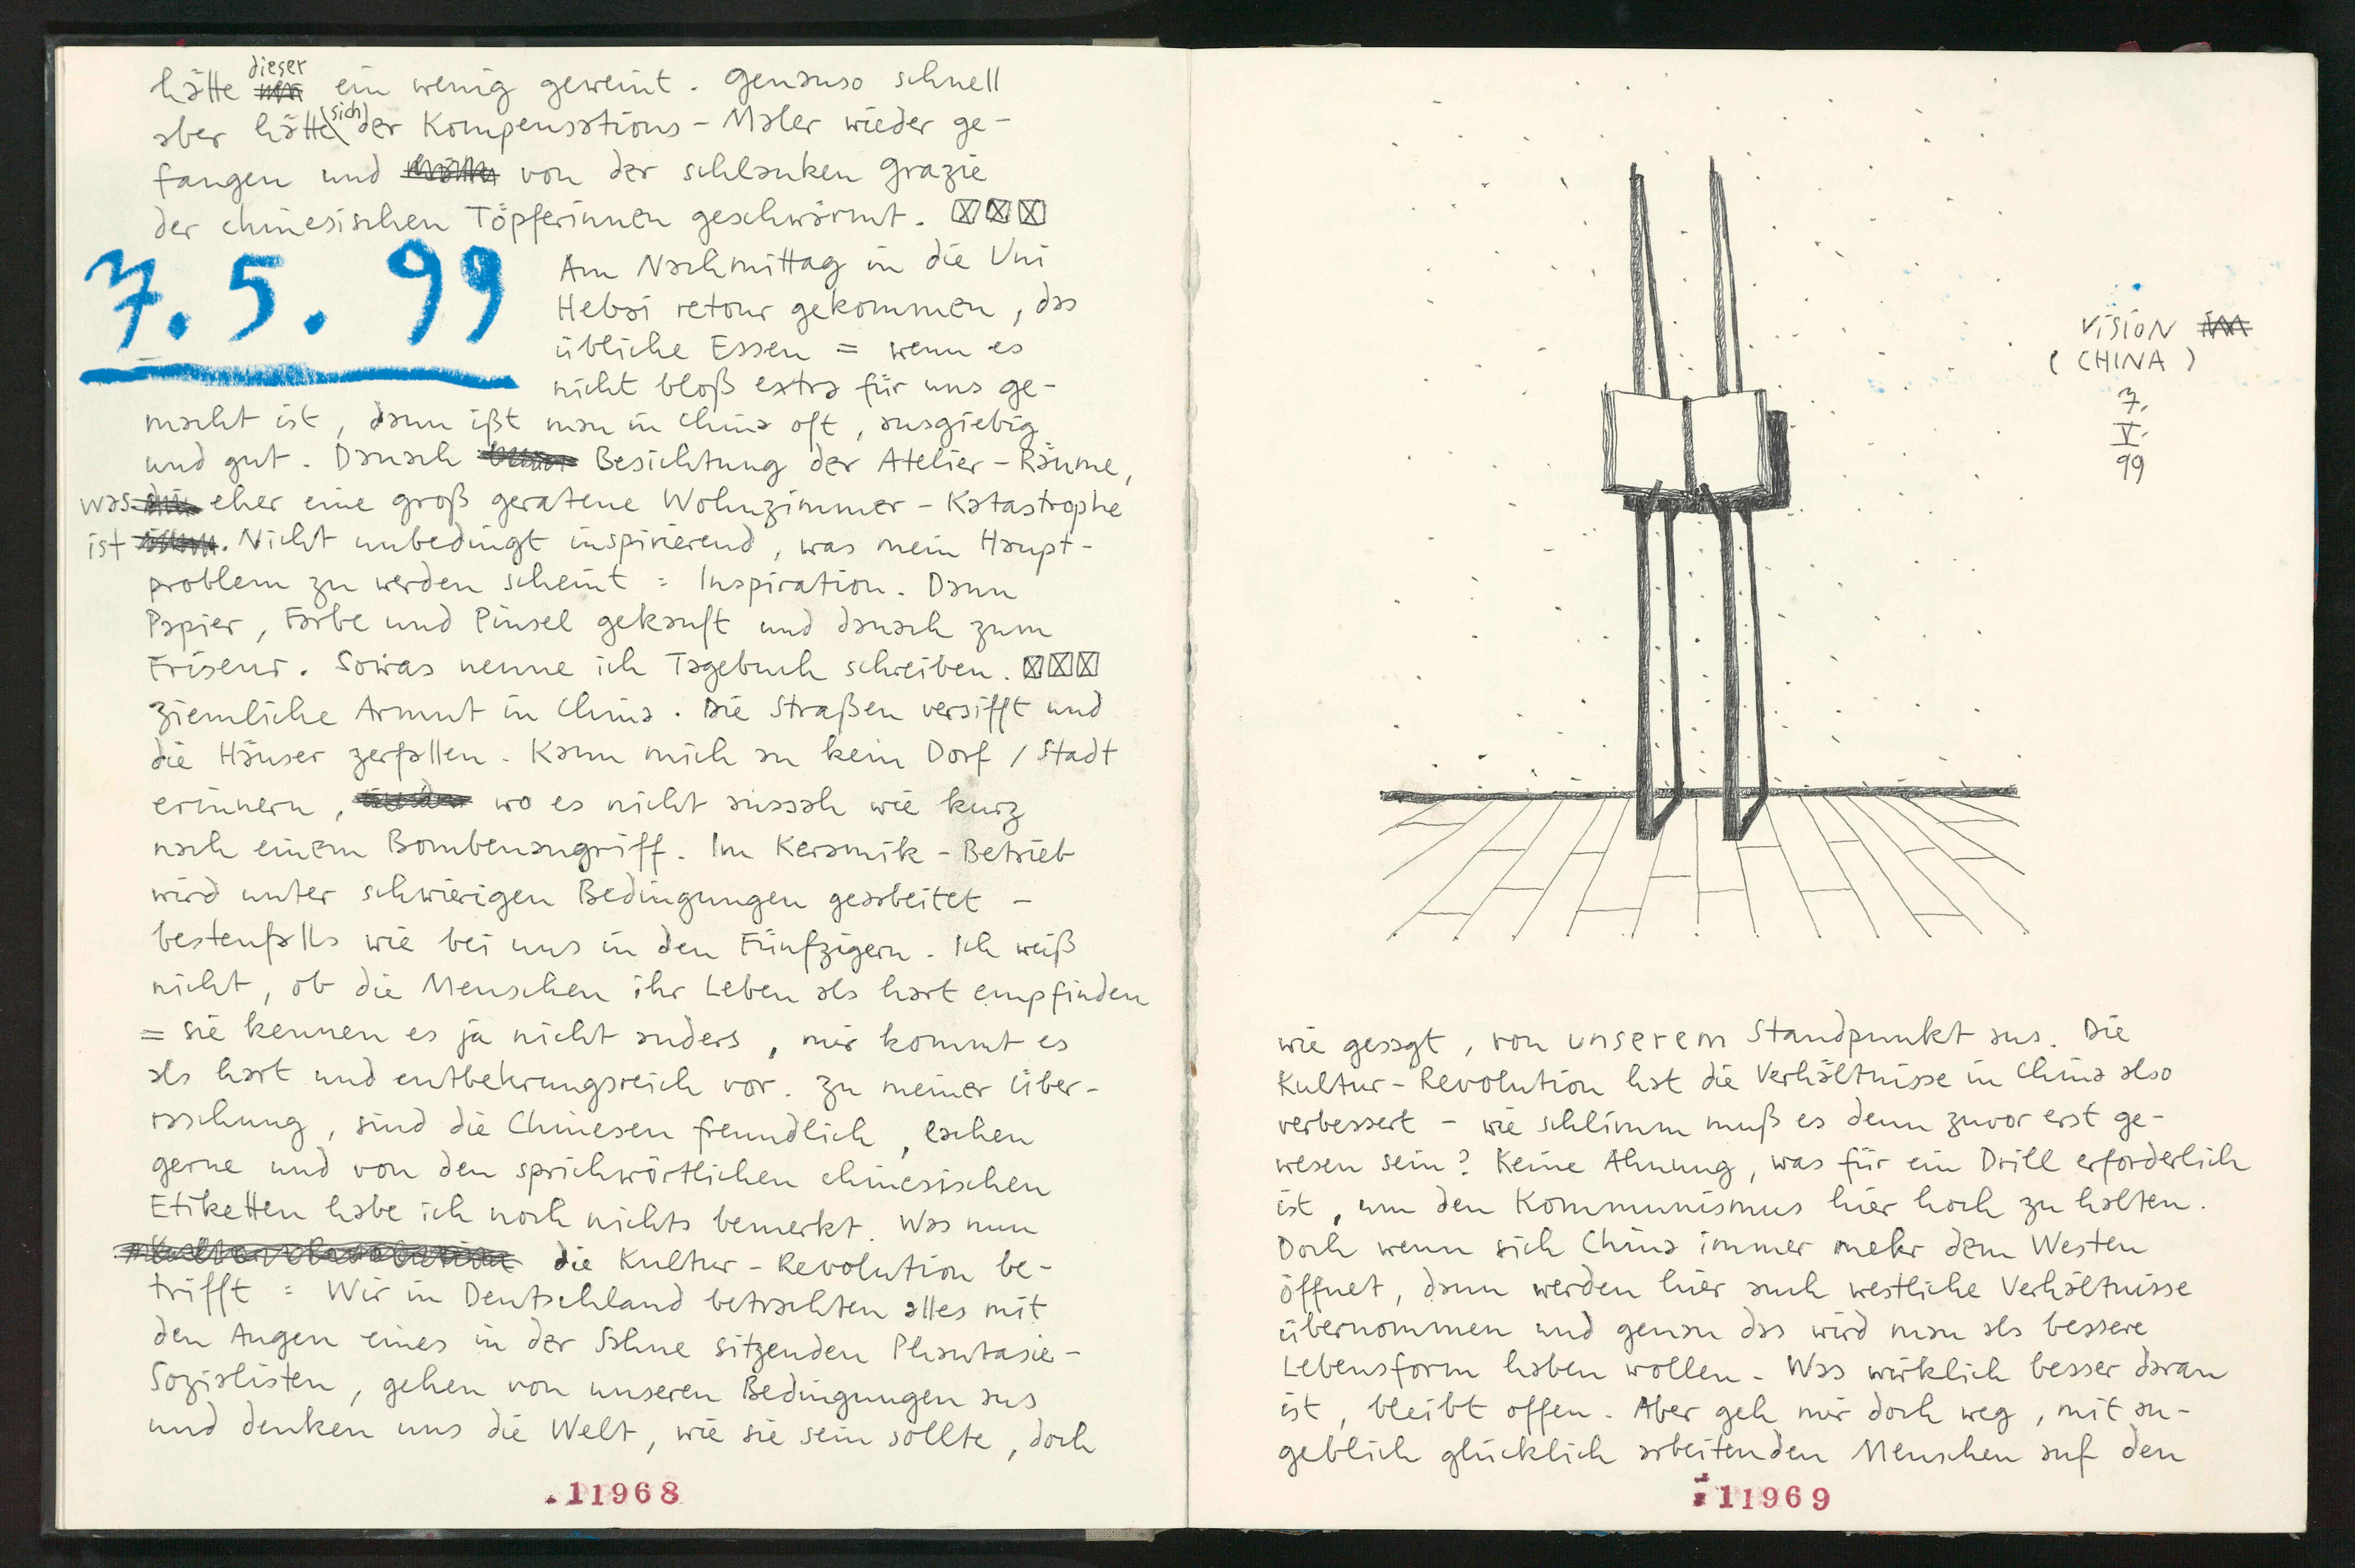 hätte dieser ein wenig geweint. Genauso schnell
aber hätte (sich) der Kompensations-Maler wieder ge-
fangen und von der schlanken Grazie
der chinesischen Töpferinnen geschwärmt. ☒☒☒
7.5.99
Am Nachmittag in die Uni
Hebei retour gekommen, das
übliche Essen = wenn es
nicht bloß extra für uns ge-
macht ist, dann ißt man in China oft, ausgiebig
und gut. Danach Besichtung der Atelier-Räume,
was eher eine groß geratene Wohnzimmer-Katastrophe
ist. Nicht unbedingt inspirierend, was mein Haupt-
problem zu werden scheint = Inspiration. Dann
Papier, Farbe und Pinsel gekauft und danach zum
Friseur. Sowas nenne ich Tagebuch schreiben. ☒☒☒
Ziemliche Armut in China. Die Straßen versifft und
die Häuser zerfallen. Kann mich an kein Dorf / Stadt
erinnern, wo es nicht aussah wie kurz
nach einem Bombenangriff. Im Keramik-Betrieb
wird unter schwierigen Bedingungen gearbeitet -
bestenfalls wie bei uns in den Fünfzigern. Ich weiß
nicht, ob die Menschen ihr Leben als hart empfinden
= sie kennen es ja nicht anders, mir kommt es
als hart und entbehrungsreich vor. Zu meiner Über-
raschung, sind die Chinesen freundlich, lachen
gerne und von den sprichwörtlichen chinesischen
Etiketten habe ich noch nichts bemerkt. Was nun
die Kultur-Revolution be-
trifft = Wir in Deutschland betrachten alles mit
den Augen eines in der Sahne sitzenden Phantasie-
Sozialisten, gehen von unseren Bedingungen aus
und denken uns die Welt, wie sie sein sollte, doch
11968
VISION
(CHINA)
7.
V.
99
wie gesagt, von unserem Standpunkt aus. Die
Kultur-Revolution hat die Verhältnisse in China also
verbessert - wie schlimm muß es denn zuvor erst ge-
wesen sein? Keine Ahnung, was für ein Drill erforderlich
ist, um den Kommunismus hier hoch zu halten.
Doch wenn sich China immer mehr dem Westen
öffnet, dann werden hier auch westliche Verhältnisse
übernommen und genau das wird man als bessere
Lebensform haben wollen. Was wirklich besser daran
ist, bleibt offen. Aber geh mir doch weg, mit an-
geblich glücklich arbeitenden Menschen auf den
11969